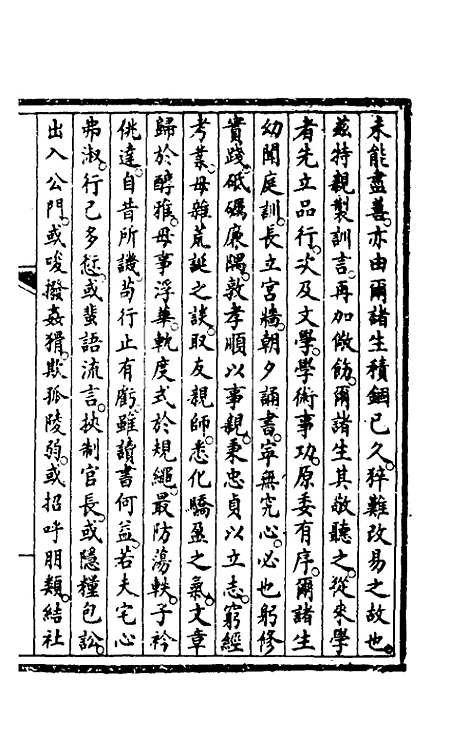 未能盡善亦由爾諸生積錮已久猝難改易之故也
茲特親製訓言再加儆飭爾諸生其敬聽之從來學
者先立品行次及文學學術事功原委有序爾諸生
幼聞庭訓長立宮牆朝夕誦書寧無究心必也躬修
實踐砥礪廉隅敦孝順以事親秉忠貞以立志窮經
考業毋雜荒誕之談取友親師悉化驕盈之氣文章
歸於醇雅毋事浮華軌度式於規繩最防蕩軼子衿
佻達自昔所譏茍行止有虧雖讀書何益若夫宅心
弗淑行己多愆或蜚語流言挾制官長或隱糧包訟
出入公門或唆撥姦猾欺孤陵弱或招呼朋類結社